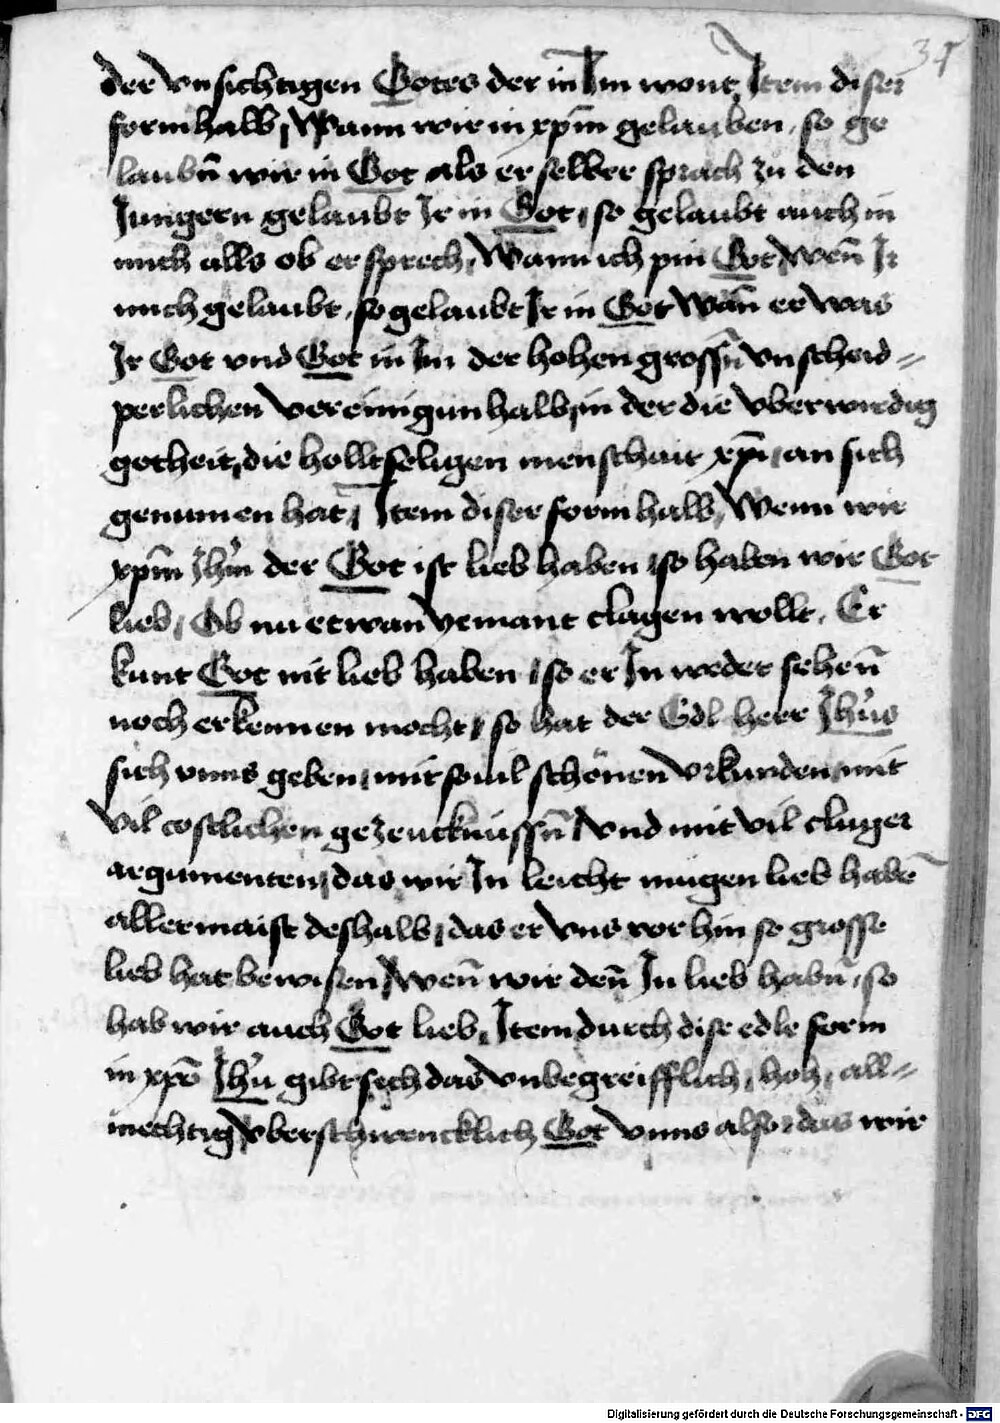 34
der vnsichtigen Gotes der in Im wont, Item diser
form halb, Wann wir in xp̄m gelauben, so ge
laubn̄ wir in Got als er selber sprach zu den
Jungern gelaubt Ir in Got, so gelaubt auch in
mich alls ob er sprech, Wann ich pin Got, wen̄ Ir
mich gelaubt, so gelaubt Ir in Got Wan̄ er was
Ir Got vnd Got in Im der hohen grossn̄ vnscheid=
perlichen vereinigun halb, in der die vberwirdig
gotheit, die holltseligen menschait xp̄i, an sich
genumen hat, Item diser form halb, Wenn wir
xp̄m Jhm̄ der Got ist lieb haben, so haben wir Got
lieb, Ob nu etwan yemant clagen wollt, Er
kunt Got nit lieb haben, so er In weder sehen̄
noch erkennen mocht, so hat der Edl herr Jhūs
sich vnns geben, mit souil schönen vrkunden, mit
vil costlichen gezeucknussn̄ vnd mit vil cluger
argumenten, das wir In leicht mügen lieb habē
allermaist deshalb, das er vns vorhin so grosse
lieb hat bewisen, Wen̄ wir den̄ In lieb habn̄, so
hab wir auch Got lieb, Item durch dise edle form
in xp̄o Jhū gibt sich das vnbegreifflich, hoh, all=
mechtig vberschwencklich Got vnns also, das wir
Digitalisierung gefördert durch die Deutsche Forschungsgemeinschaft - DFG